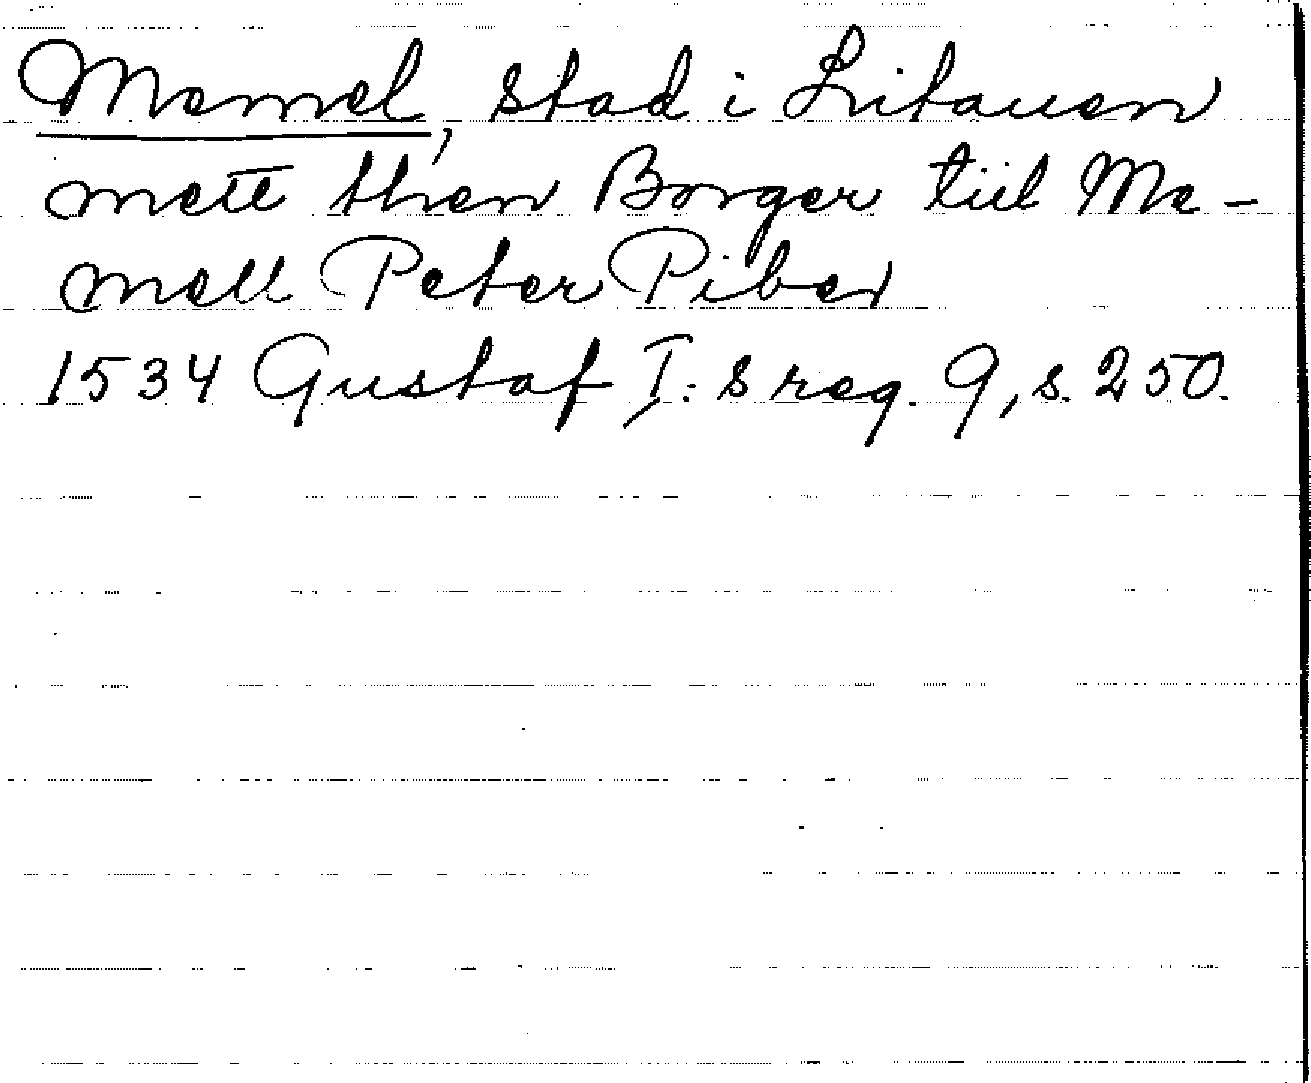 Memel, stad i Litauen
mett then Borger tiil Me-
mell Peter Piber
1534 Gustaf I:s reg. 9, s. 250.